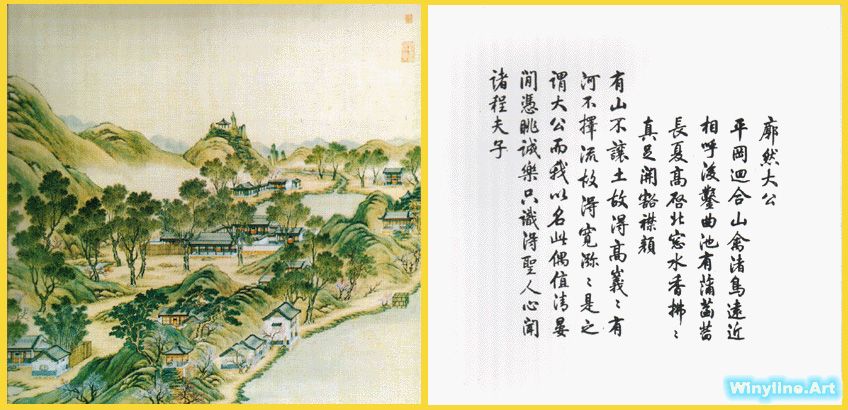 廓然大公
平岡迴合山禽渚鳥遠近
相呼後鑿曲池有蒲菡萏
長夏高啟北窓水香拂〻
真足開豁襟顏
有山不讓土故得高峩〻有
河不擇流故得寬瀰〻是之
謂大公而我以名此偶值清晏
閒憑眺誠樂只識得聖人心聞
諸程夫子
Winyline.Art